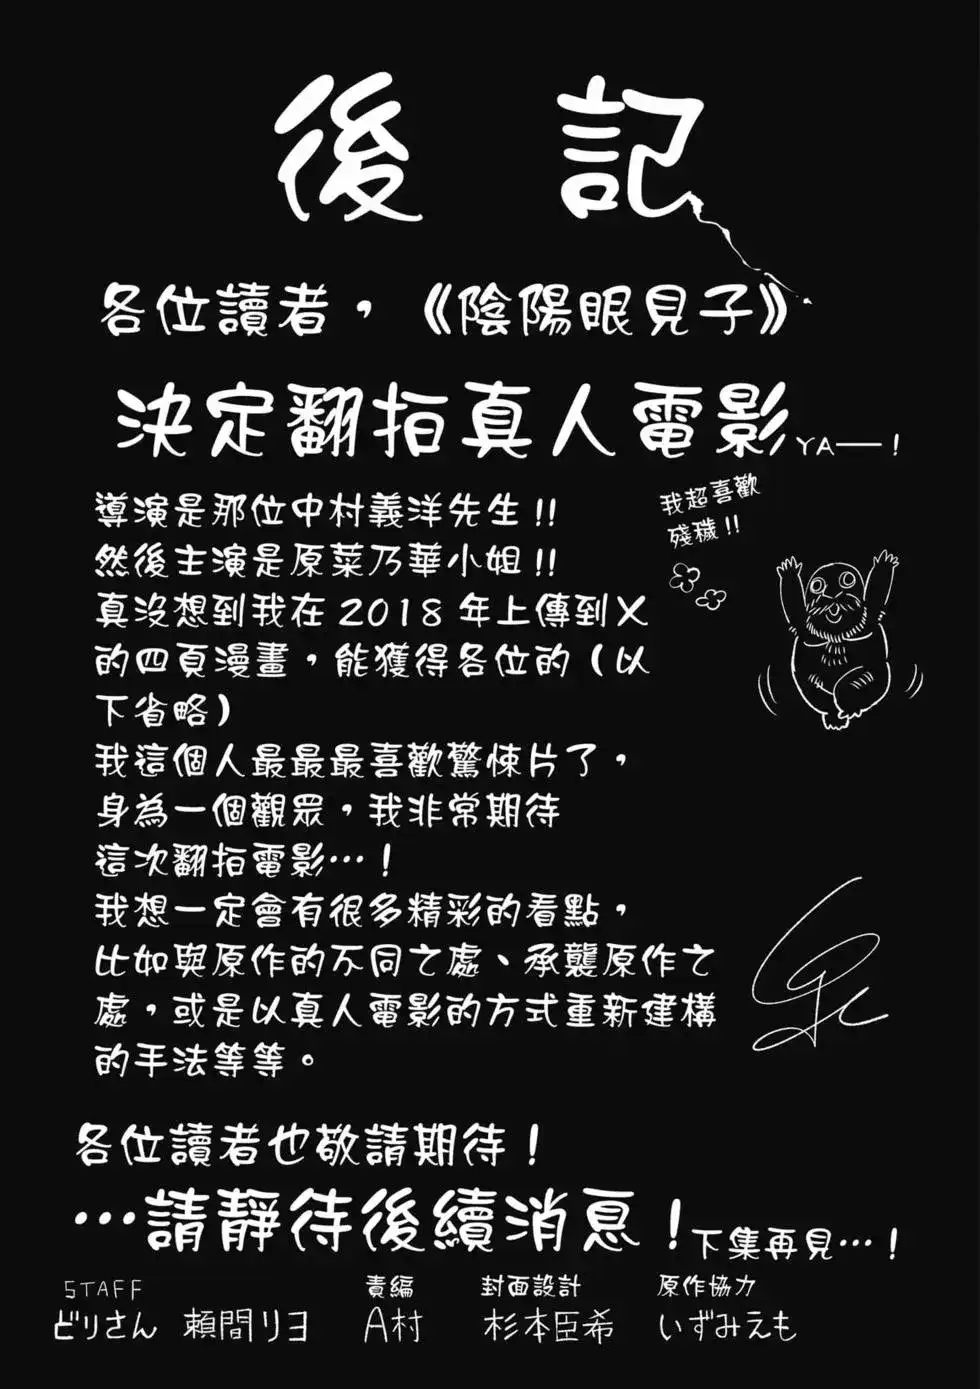 後記
各位讀者，《陰陽眼見子》
決定翻拍真人電影YA——！
導演是那位中村義洋先生!!
我超喜歡
殘穢!!
然後主演是原菜乃華小姐!!
真沒想到我在2018年上傳到X
的四頁漫畫，能獲得各位的（以
下省略）
我這個人最最最喜歡驚悚片了，
身為一個觀眾，我非常期待
這次翻拍電影…！
我想一定會有很多精彩的看點，
比如與原作的不同之處、承襲原作之
處，或是以真人電影的方式重新建構
的手法等等。
各位讀者也敬請期待！
…請靜待後續消息！下集再見…！
STAFF 責編 封面設計 原作協力
どりさん 頼間リヨ A村 杉本臣希 いずみえも